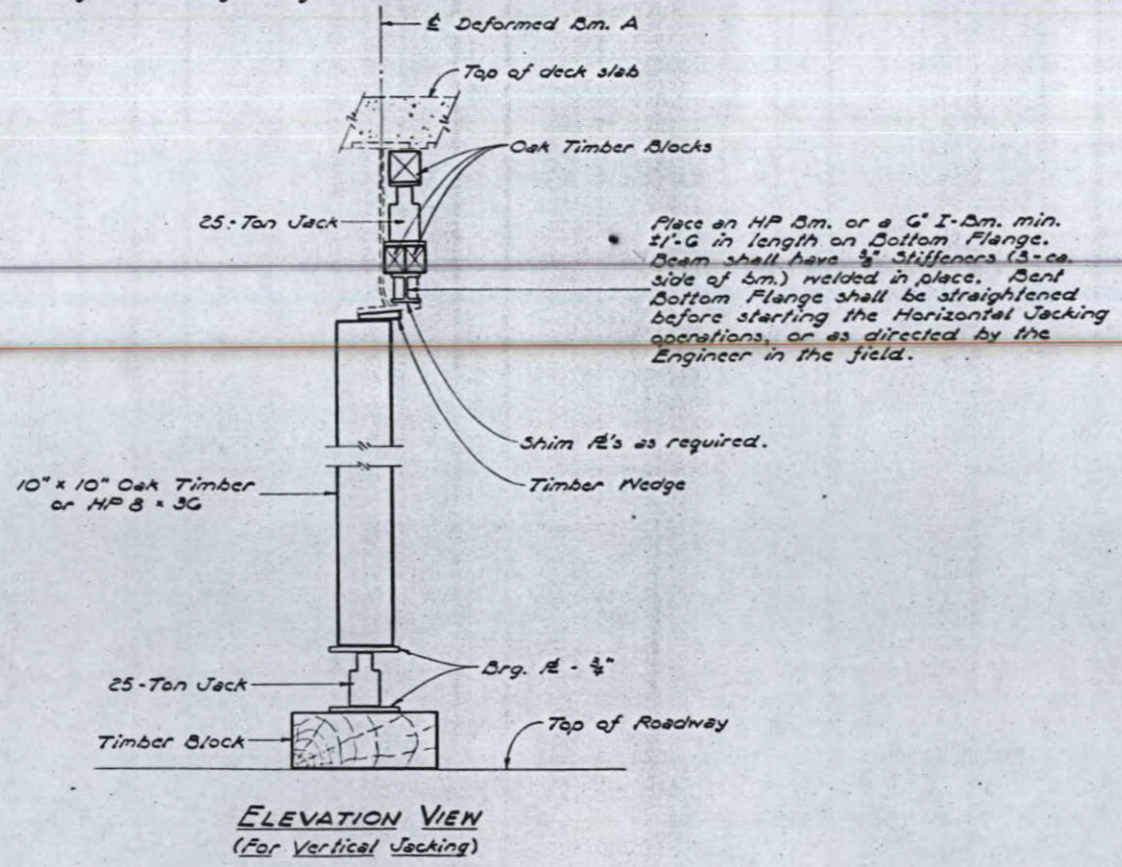 ℄ Deformed Bm. A
Top of deck slab
Oak Timber Blocks
25-Ton Jack
Place an HP Bm. or a 6" I-Bm. min.
±1'-6 in length on Bottom Flange.
Beam shall have ⅜" Stiffeners (3-ea.
side of bm.) welded in place. Bent
Bottom Flange shall be straightened
before starting the Horizontal Jacking
operations, or as directed by the
Engineer in the field.
Shim ℄'s as required.
Timber Wedge
10" x 10" Oak Timber
or HP 8 x 36
Brg. ℄ - ¾"
25-Ton Jack
Timber Block
Top of Roadway
ELEVATION VIEW
(For Vertical Jacking)